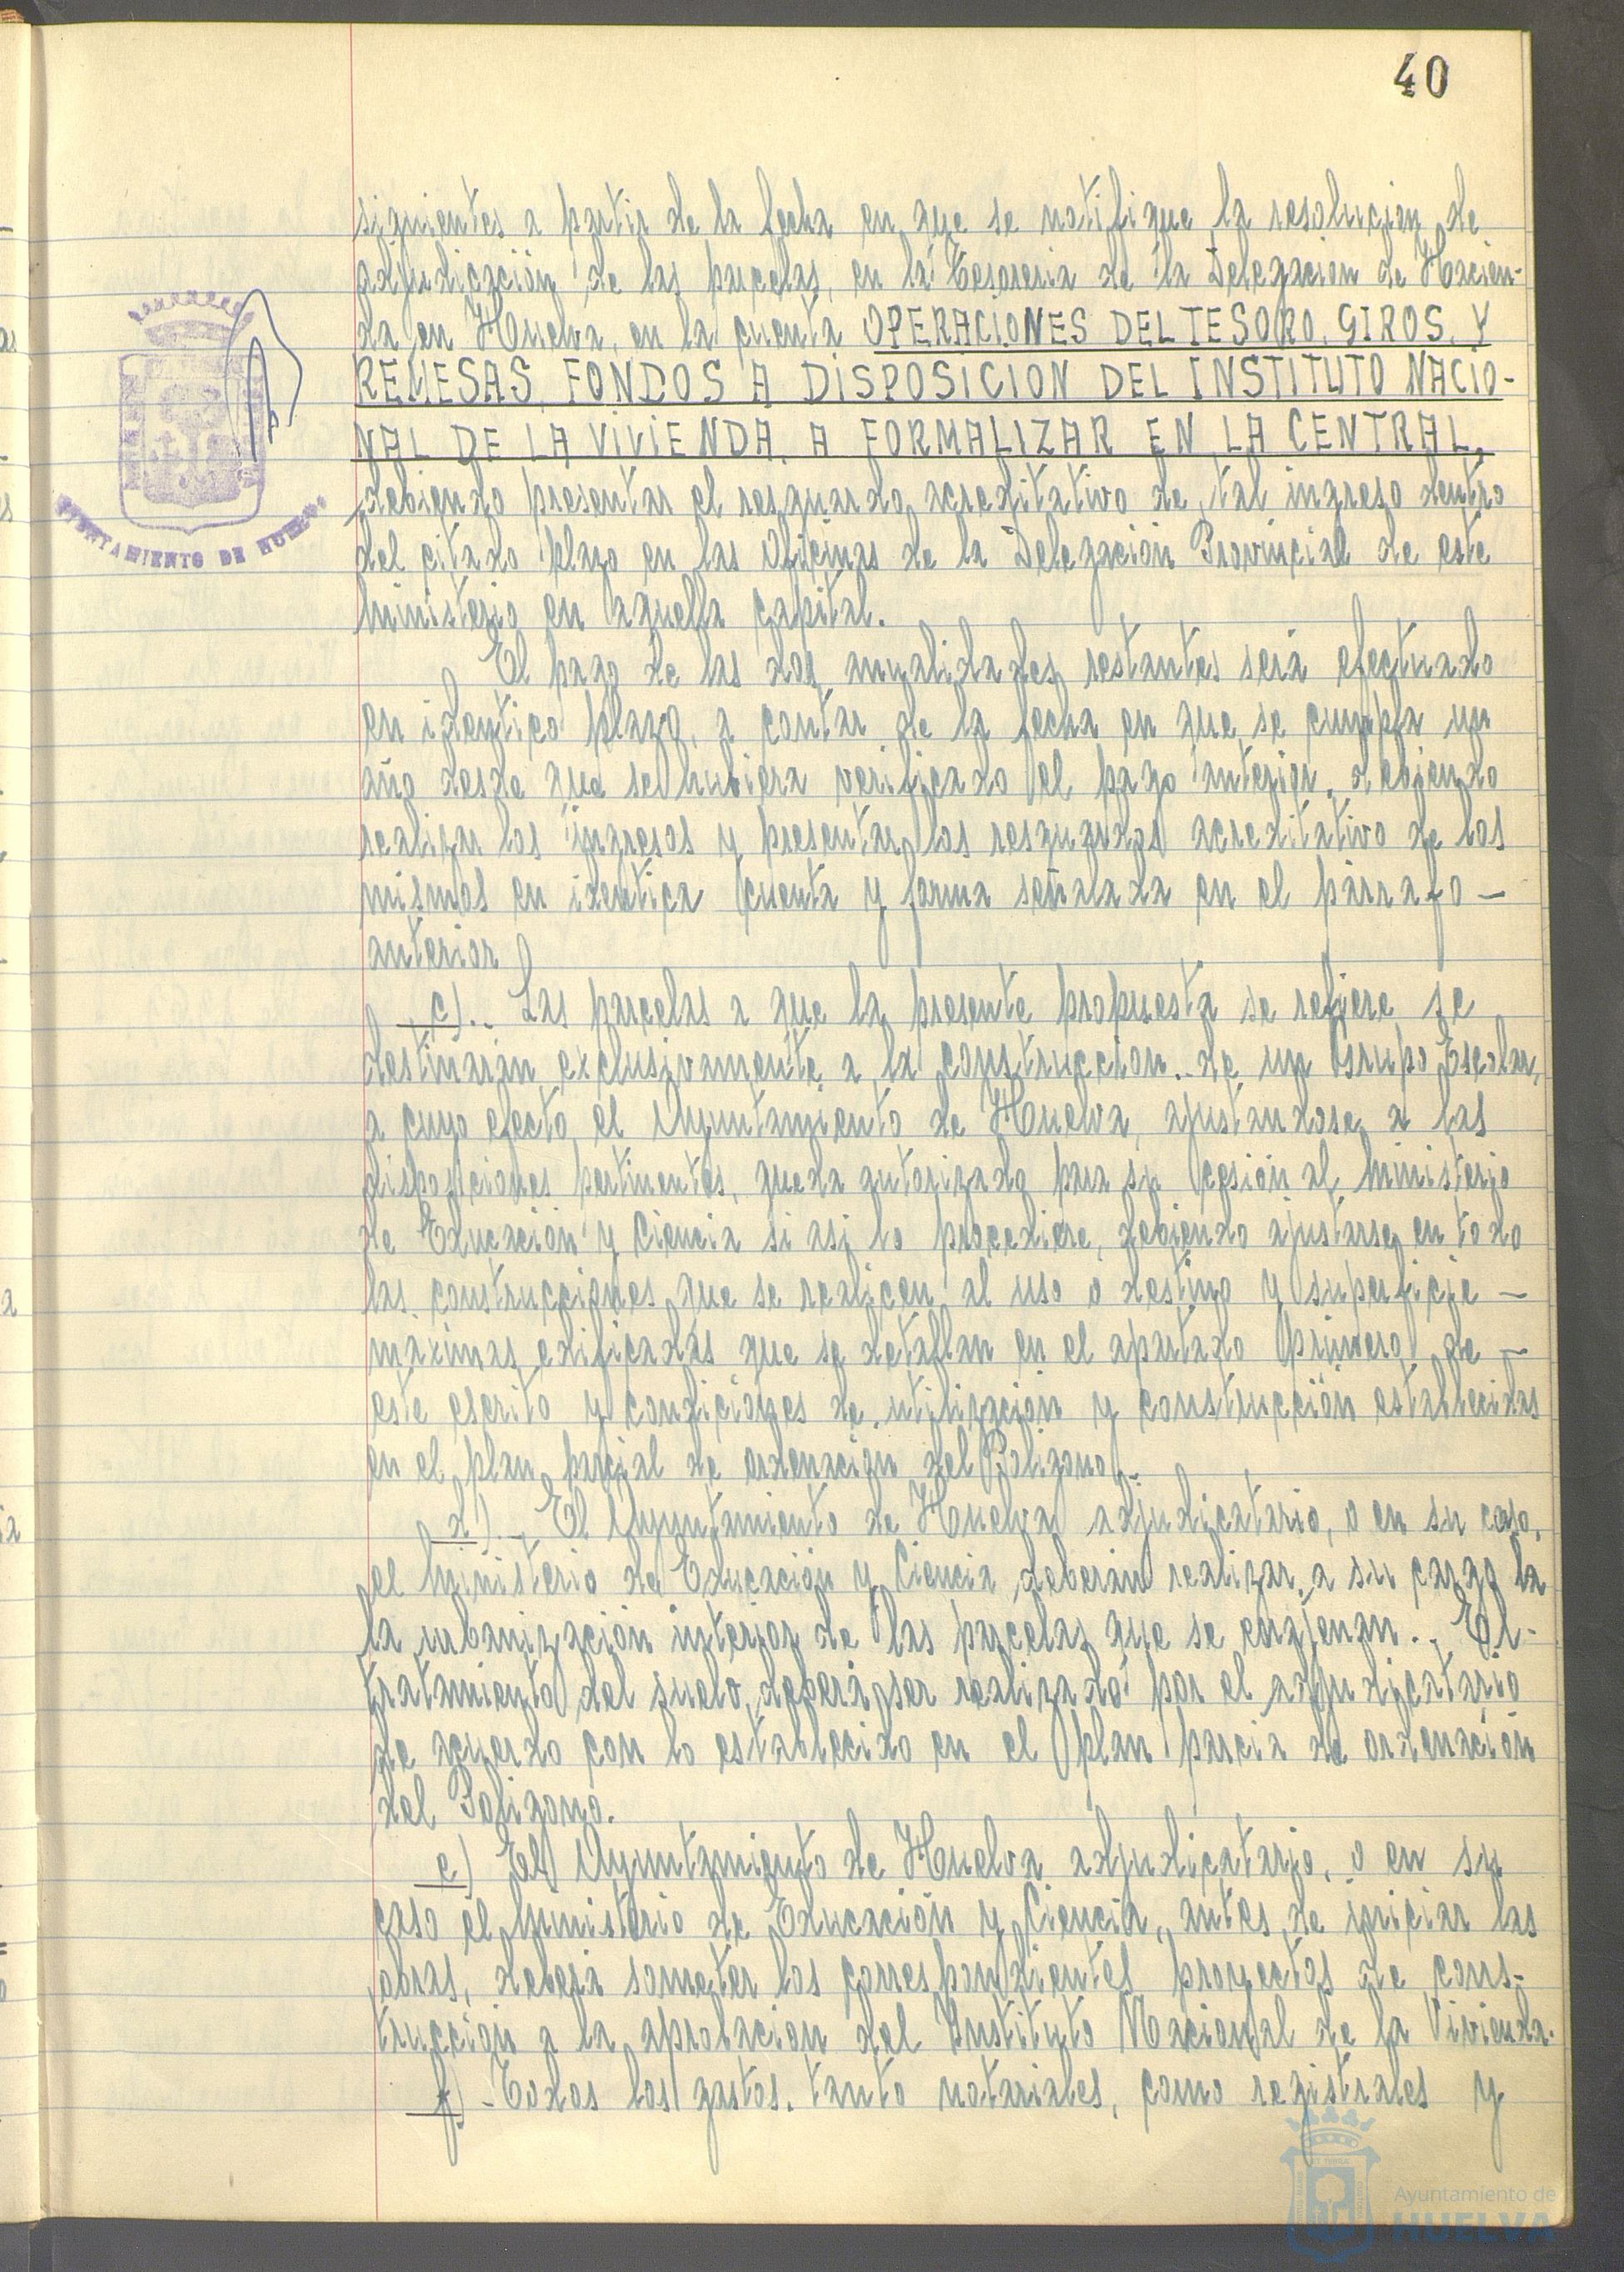 40
siguientes a partir de la fecha en que se notifique la resolucion de
adjudicación de las parcelas, en la Tesoreria de la Delegacion de Hacien-
da en Huelva, en la cuenta OPERACIONES DEL TESORO, GIROS, Y
REMESAS, FONDOS A DISPOSICION DEL INSTITUTO NACIO-
NAL DE LA VIVIENDA, A FORMALIZAR EN LA CENTRAL,
debiendo presentar el resguardo acreditativo de tal ingreso dentro
del citado plazo en las Oficinas de la Delegación Provincial de este
Ministerio en aquella capital.
El pago de las dos anualidades restantes será efectuado
en identico plazo, a contar de la fecha en que se cumpla un
año desde que se hubiera verificado el pago anterior, debiendo
realizar los ingresos y presentar los resguardos acreditativo de los
mismos en identica cuenta y forma señalada en el párrafo -
anterior
c).- Las parcelas a que la presente propuesta se refiere se
destinarán exclusivamente a la construccion de un Grupo Escolar,
a cuyo efecto el Ayuntamiento de Huelva, ajustandose a las
disposiciones pertinentes, queda autorizado para su cesión al Ministerio
de Educación y Ciencia si asi lo procediere, debiendo ajustarse en todo
las construcciones que se realicen al uso o destino y superficie -
máximas edificadas que se detallan en el apartado primero de -
este escrito y condiciones de utilización y construcción establecidas
en el plan parcial de ordenación del Poligono.-
d).- El Ayuntamiento de Huelva adjudicatario, o en su caso,
el Ministerio de Educación y Ciencia deberán realizar a su cargo la
la urbanización interior de las parcelas que se enajenan.- El-
tratamiento del suelo, deberá ser realizado por el adjudicatario
de acuerdo con lo establecido en el plan parcia de ordenación
del Poligono.
e) El Ayuntamiento de Huelva adjudicatario, o en su
caso el Ministerio de Educación y Ciencia, antes de iniciar las
obras, deberá someter los correspondientes proyectos de cons-
trucción a la aprobacion del Instituto Nacional de la Vivienda.
f) - Todos los gastos, tanto notariales, como registrales y
AYUNTAMIENTO DE HUELVA
Ayuntamiento de
HUELVA